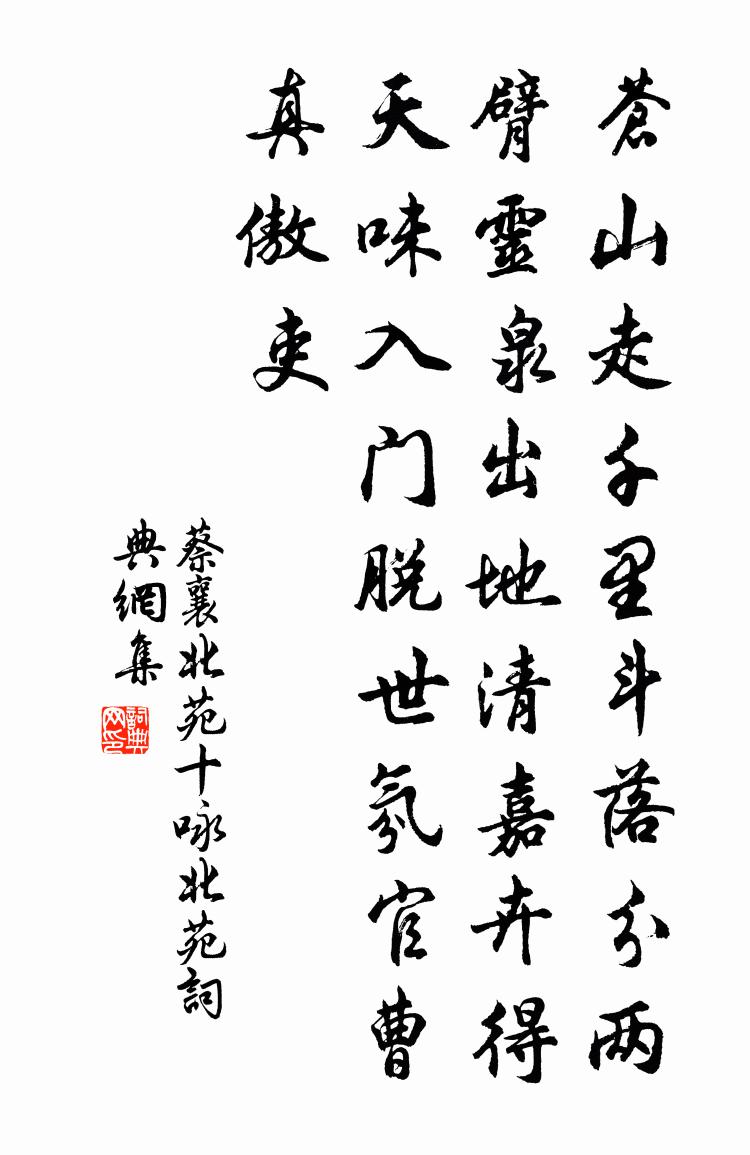 蒼山走千里斗落分两
臂靈泉出地清嘉卉得
天味入门脱世氛官曹
真傲吏
蔡襄北苑十咏北苑詞
典網集
詞典网印